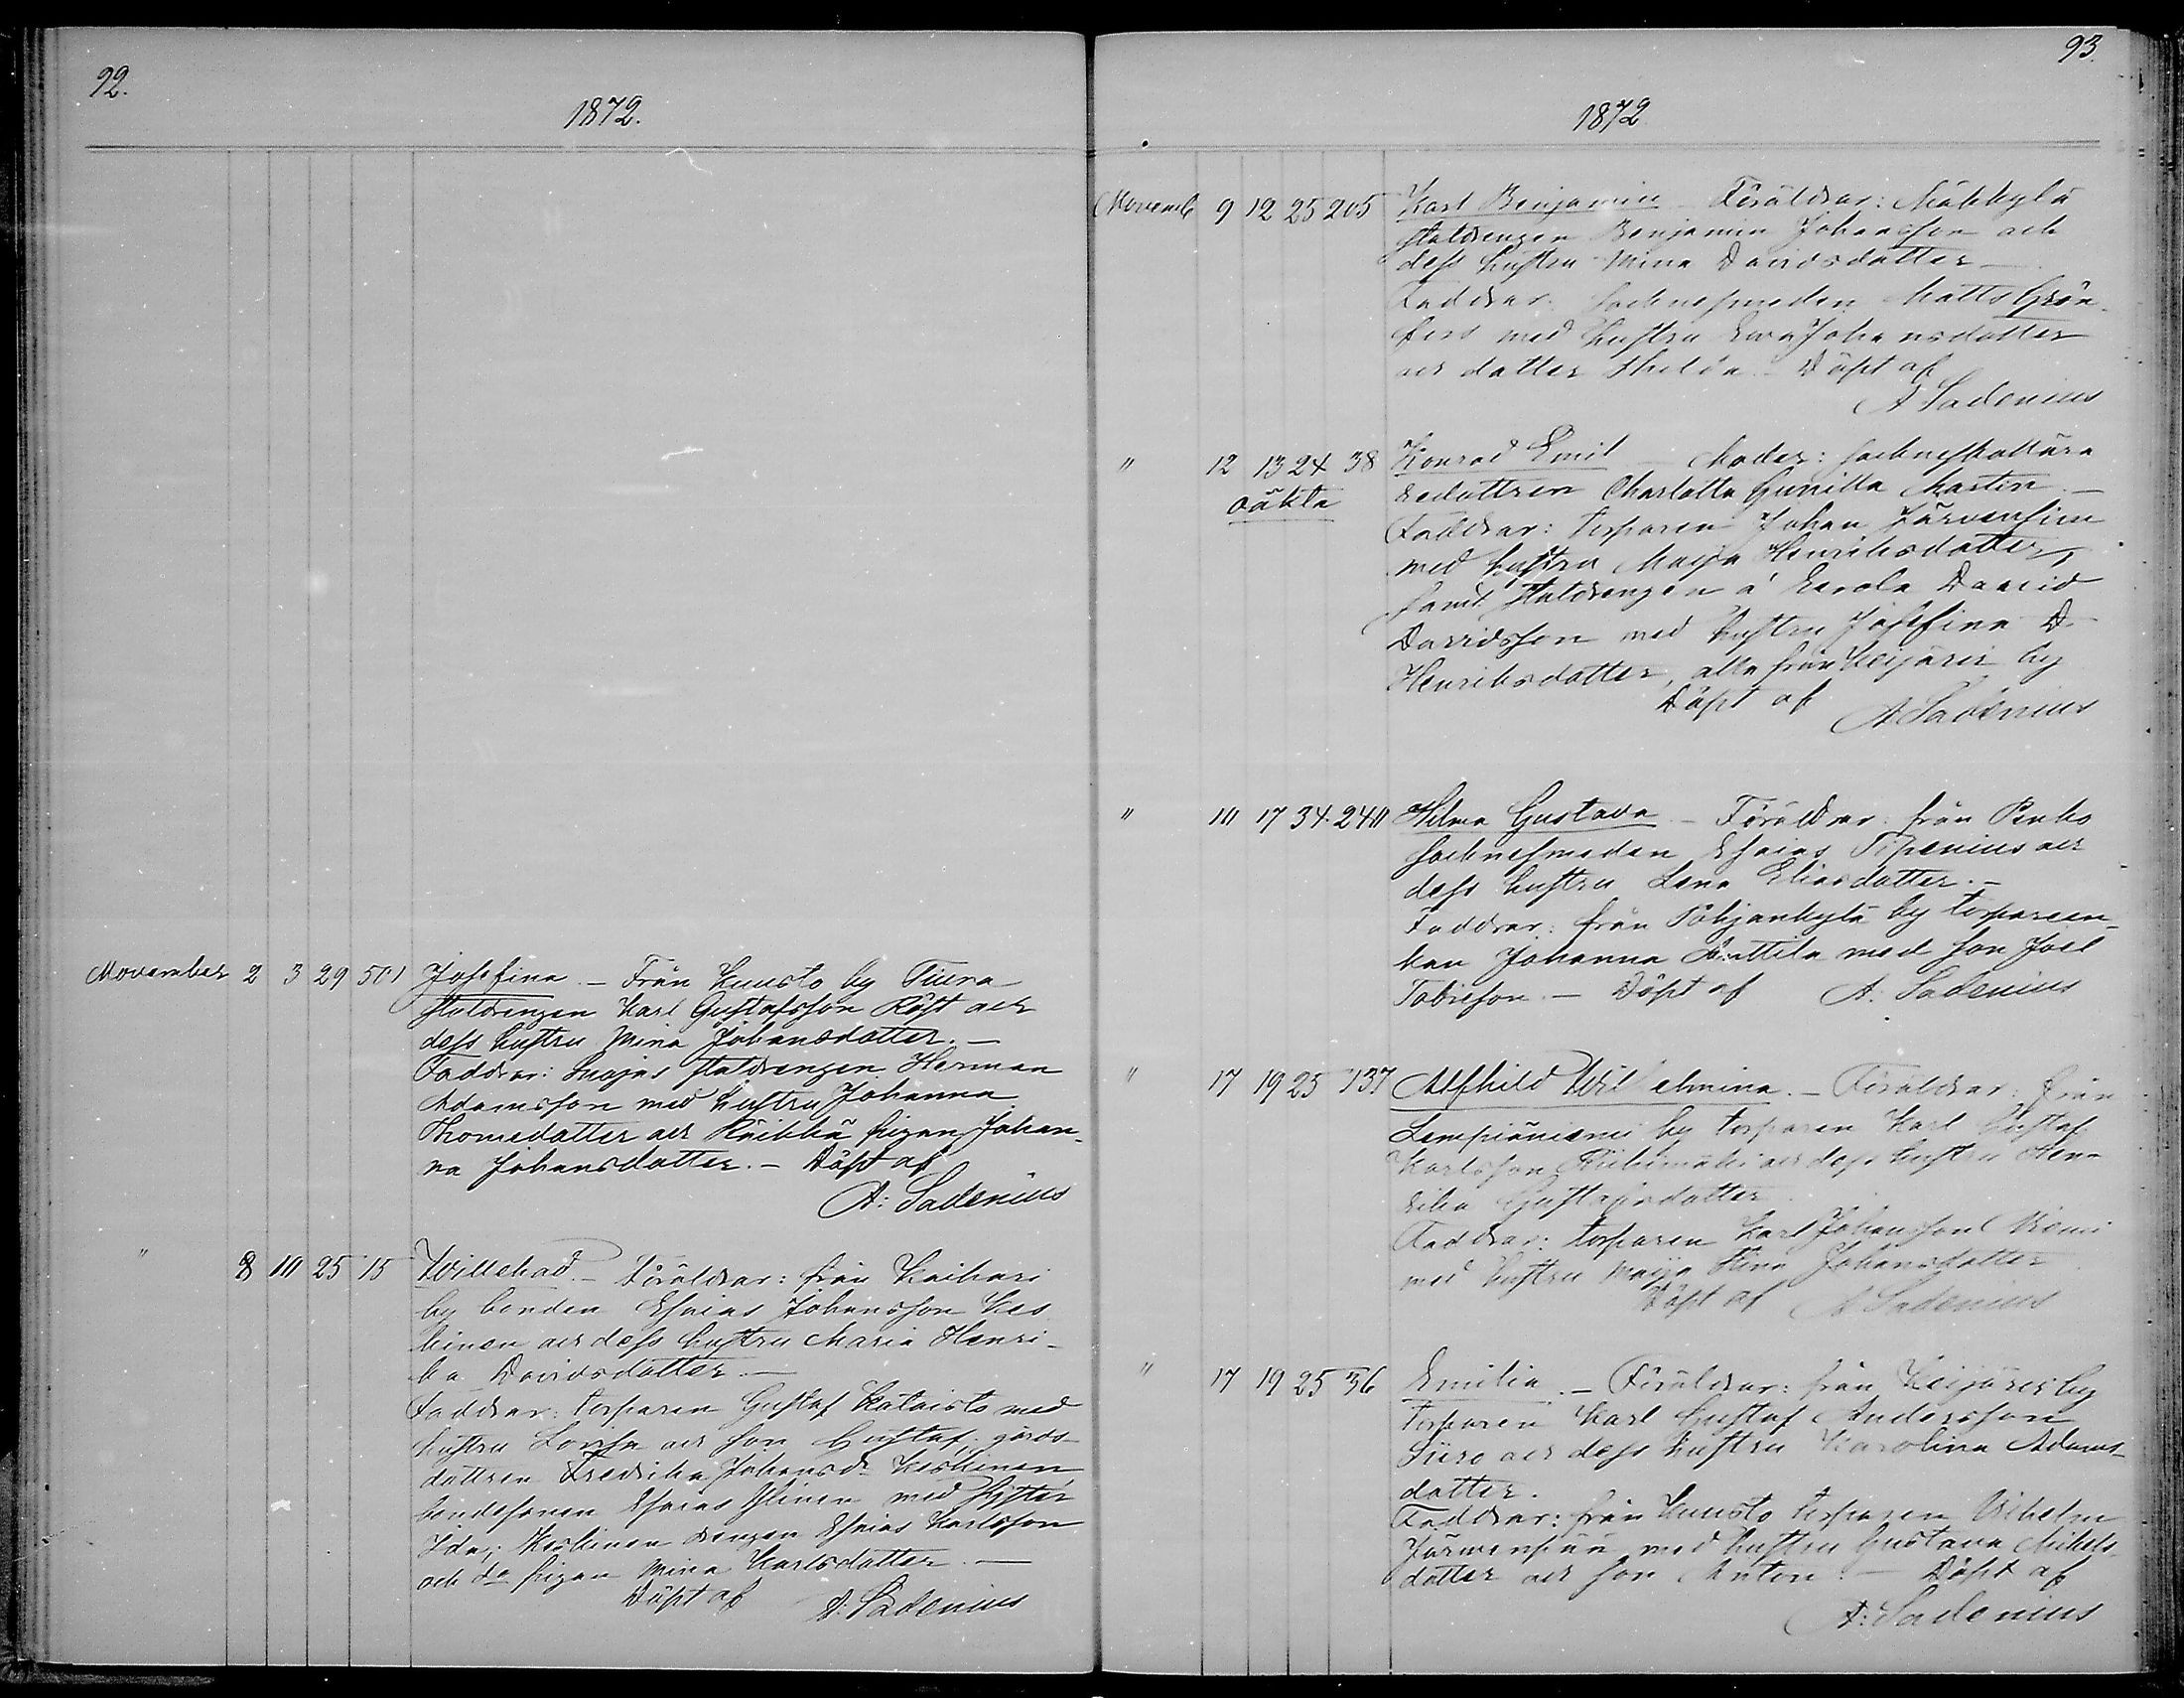 92.
1872.
November 2 3 29 501 Josefina. – Från Kuusto by Tiura
statdrengen Karl Gustafsson Röst och
dess hustru Mina Johansdotter. –
Faddrar: Majas statdrengen Herman
Adamsson med hustru Johanna
Thomedotter och Räikkä pigan Johan-
na Johansdotter. – Döpt af
A: Sadenius
" 8 10 25 15 Willehad. – Föräldrar: från Kaihari
by bonden Esaias Johansson Kes-
kinen och dess hustru Maria Henri-
ka Davidsdotter. –
Faddrar: torparen Gustaf Kataisto med
hustru Lovisa och son Gustaf, gårds-
dottren Fredrika Johansdr Keskinen
bondesonen Esaias Ylinen med syster
Ida, Keskinen drengen Esaias Karlsson
och do pigan Mina Karlsdotter. –
Döpt af A: Sadenius
93.
1872
Novemb 9 12 25 205 Karl Benjamin – Föräldrar: Mäkkylä
statdrengen Benjamin Johansson och
dess hustru Mina Davidsdotter –
Faddrar: socknesmeden Matts Grön-
fors med hustru Eva Johansdotter
och dotter – Döpt af
A Sadenius
" 12 13 24 38 Konrad Emil – Moder: sockneskollära
redottren Charlotta Gunilla Martin. –
oäkta
Faddrar: torparen Johan Järvensivu
med hustru Maija Henriksdotter,
samt statdrengen á Eerola David
Davidsson med hustru Josefina D
Henriksdotter, alla från Keijäris by
Döpt af A Sadenius
" 10 17 34 240 Hilma Gustava. – Föräldrar: från Penko
socknesmeden Esaias och
dess hustru Lena Eliasdotter. –
Faddrar: från Pohjankylä by torparen-
kan Johanna Anttila med son Joel
Tobiesson. – Döpt af A: Sadenius
" 17 19 25 137 Alfhild Wilhelmina. – Föräldrar: från
Lempiäniemi by torparen Karl Gustaf
Karlsson Riihimäki och dess hustru Hen-
rika Gustafsdotter.
Faddrar: torparen Karl Johansson Niemi
med hustru Maija Stina Johansdotter
Döpt af A Sadenius
" 17 19 25 36 Emilia. – Föräldrar: från Keijäris by
torparen Karl Gustaf Andersson
Siiro och dess hustru Karolina Adams-
dotter.
Faddrar: från Kuusto torparen Vilhelm
Järvenpää med hustru Gustava Mikels-
dotter och son Anton. – Döpt af
A: Sadenius